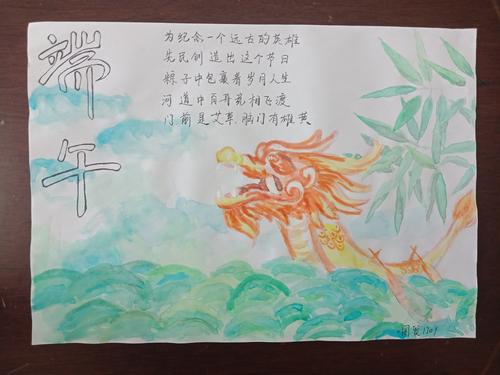 端午
为纪念一个远古的英雄
先民创造出这个节日
粽子中包裹着岁月人生
河道中百舸竞相飞渡
门前是艾草 脑门有雄黄
1709